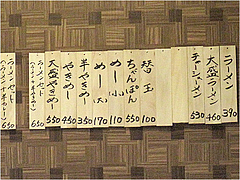 ラーメン
390
大盛ラーメン
460
チャーシューメン
530
替玉
100
ちゃんぽん
550
めし(小)
110
めし(大)
170
半やきめし
350
やきめし
450
大盛やきめし
550
650
650